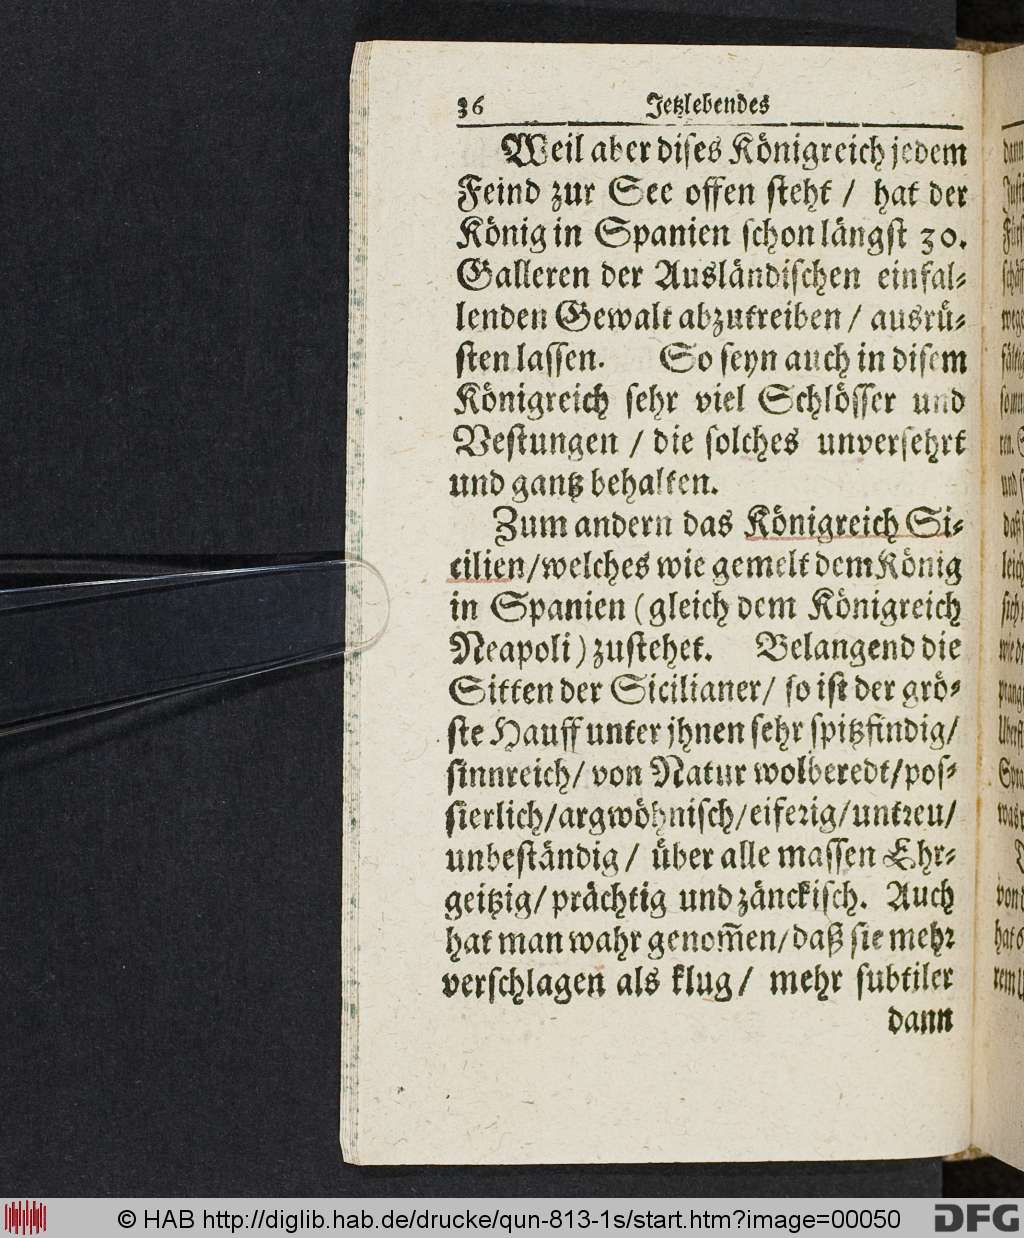 36 Jetzlebendes
Weil aber dises Königreich jedem
Feind zur See offen steht / hat der
König in Spanien schon längst 30.
Galleren der Ausländischen einfal-
lenden Gewalt abzutreiben / ausrü-
sten lassen. So seyn auch in disem
Königreich sehr viel Schlösser und
Vestungen / die solches unversehrt
und gantz behalten.
Zum andern das Königreich Si-
cilien/welches wie gemelt dem König
in Spanien (gleich dem Königreich
Neapoli) zustehet. Belangend die
Sitten der Sicilianer/ so ist der grö-
ste Hauff unter jhnen sehr spitzfindig/
sinnreich/ von Natur wolberedt/pos-
sierlich/argwöhnisch/eiferig/untreu/
unbeständig/ über alle massen Ehr-
geitzig/ prächtig und zänckisch. Auch
hat man wahr genom̃en/daß sie mehr
verschlagen als klug/ mehr subtiler
dann
© HAB http://diglib.hab.de/drucke/qun-813-1s/start.htm?image=00050
DFG